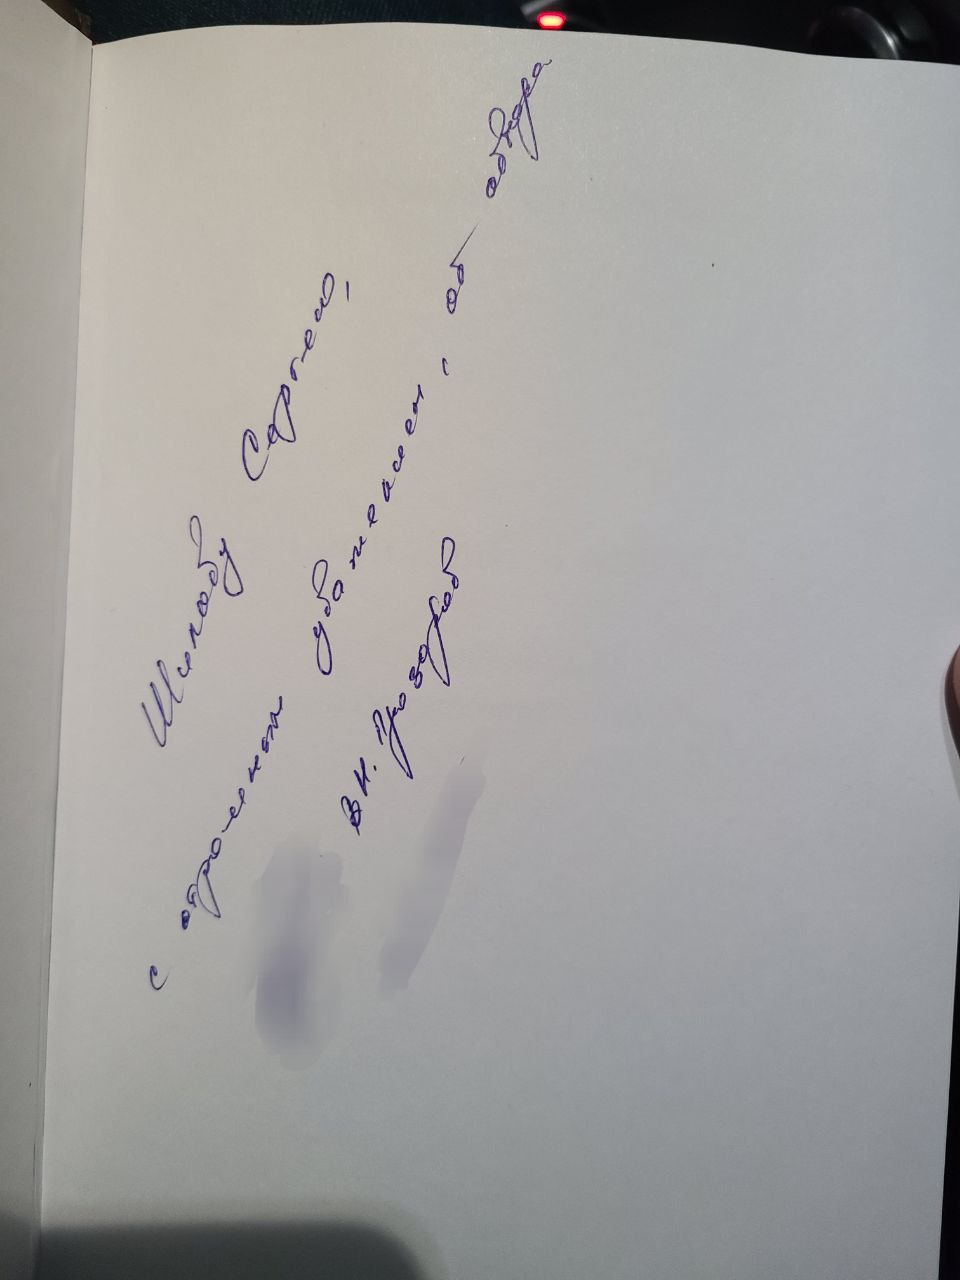 Шилову Сергею,
с огромным уважением, от автора
В.Н. Прозоров